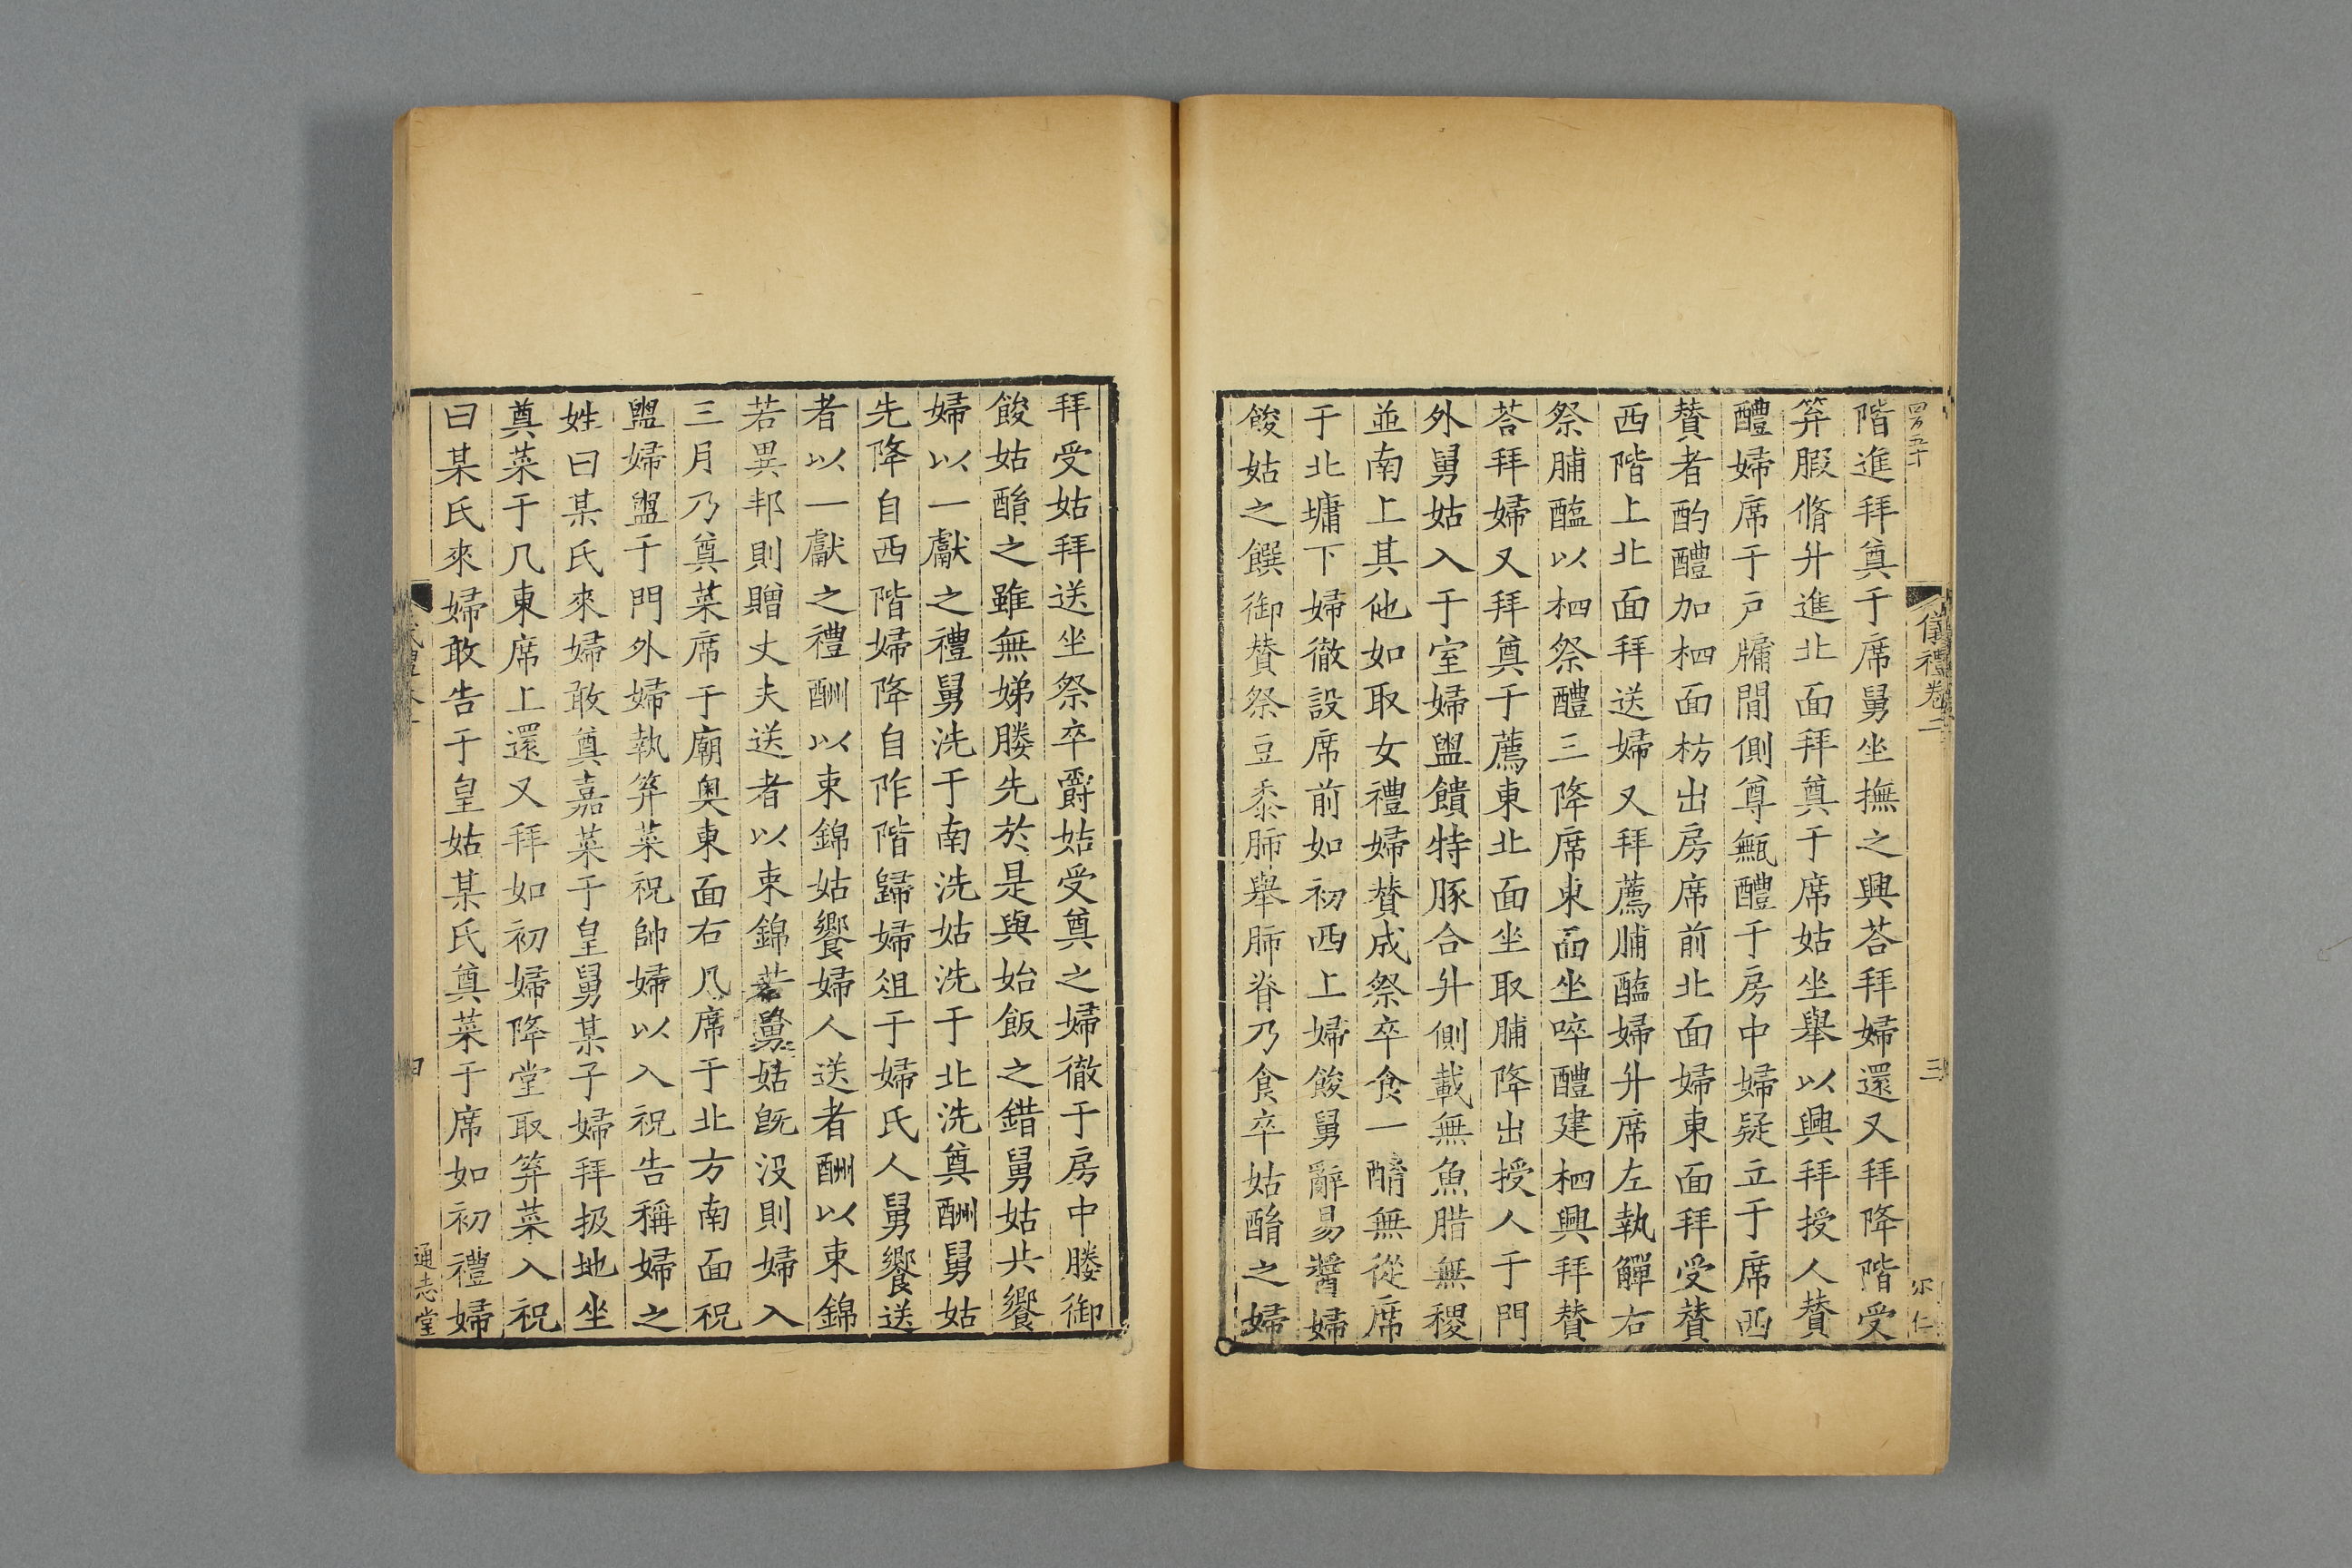 儀禮卷二
三
階進拜奠于席舅坐撫之興荅拜婦還又拜降階受
笲腶脩升進北面拜奠于席姑坐舉以興拜授人贊
醴婦席于戶牖閒側尊甒醴于房中婦疑立于席西
贊者酌醴加柶面枋出房席前北面婦東面拜受贊
西階上北面拜送婦又拜薦脯醢婦升席左執觶右
祭脯醢以柶祭醴三降席東面坐啐醴建柶興拜贊
荅拜婦又拜奠于薦東北面坐取脯降出授人于門
外舅姑入于室婦盥饋特豚合升側載無魚腊無稷
並南上其他如取女禮婦贊成祭卒食一酳無從席
于北墉下婦徹設席前如初西上婦餕舅辭易醬婦
餕姑之饌御贊祭豆黍肺舉肺脊乃食卒姑酳之婦
拜受姑拜送坐祭卒爵姑受奠之婦徹于房中媵御
餕姑酳之雖無娣媵先於是與始飯之錯舅姑共饗
婦以一獻之禮舅洗于南洗姑洗于北洗奠酬舅姑
先降自西階婦降自阼階歸婦俎于婦氏人舅饗送
者以一獻之禮酬以束錦姑饗婦人送者酬以束錦
若異邦則贈丈夫送者以束錦若舅姑旣沒則婦入
三月乃奠菜席于廟奥東面右几席于北方南面祝
盥婦盥于門外婦執笲菜祝帥婦以入祝告稱婦之
姓曰某氏來婦敢奠嘉菜于皇舅某子婦拜扱地坐
奠菜于几東席上還又拜如初婦降堂取笲菜入祝
曰某氏來婦敢告于皇姑某氏奠菜于席如初禮婦
通志堂